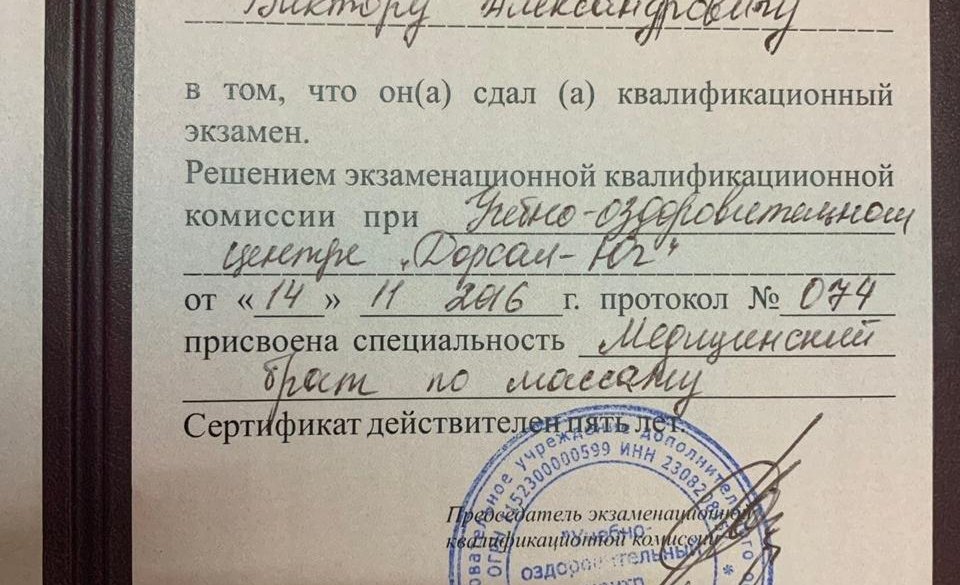 Виктору Александровичу
в том, что он(а) сдал (а) квалификационный
экзамен.
Решением экзаменационной квалификациионной
комиссии при Учебно-оздоровительном
центре „Дорсал-Юг"
от «14» 11 2016 г. протокол № 074
присвоена специальность Медицинский
брат по массажу
Сертификат действителен пять лет.
учреждение дополнительного
ИНН
Председатель экзаменационной
квалификационной комиссии
"Учебно-
оздоровительный
центр